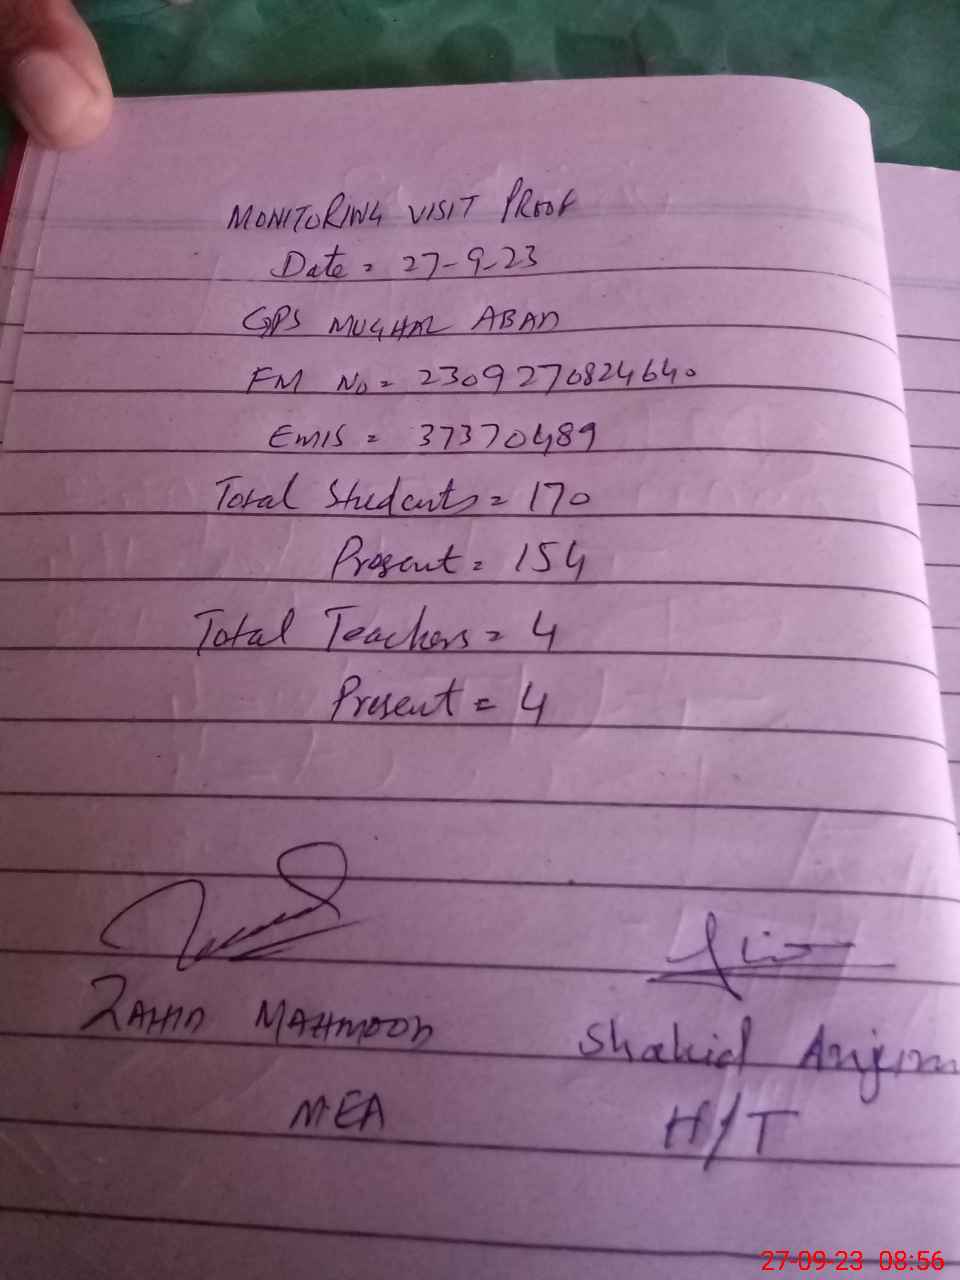 MONITORING VISIT PROOF
Date = 27-9-23
GPS MUGHAL ABAD
FM No = 2309270824640
EMIS = 37370489
Total Students = 170
Present = 154
Total Teachers = 4
Present = 4
ZAHID MAHMOOD
Shahid Anjum
MEA
H/T
27-09-23 08:56